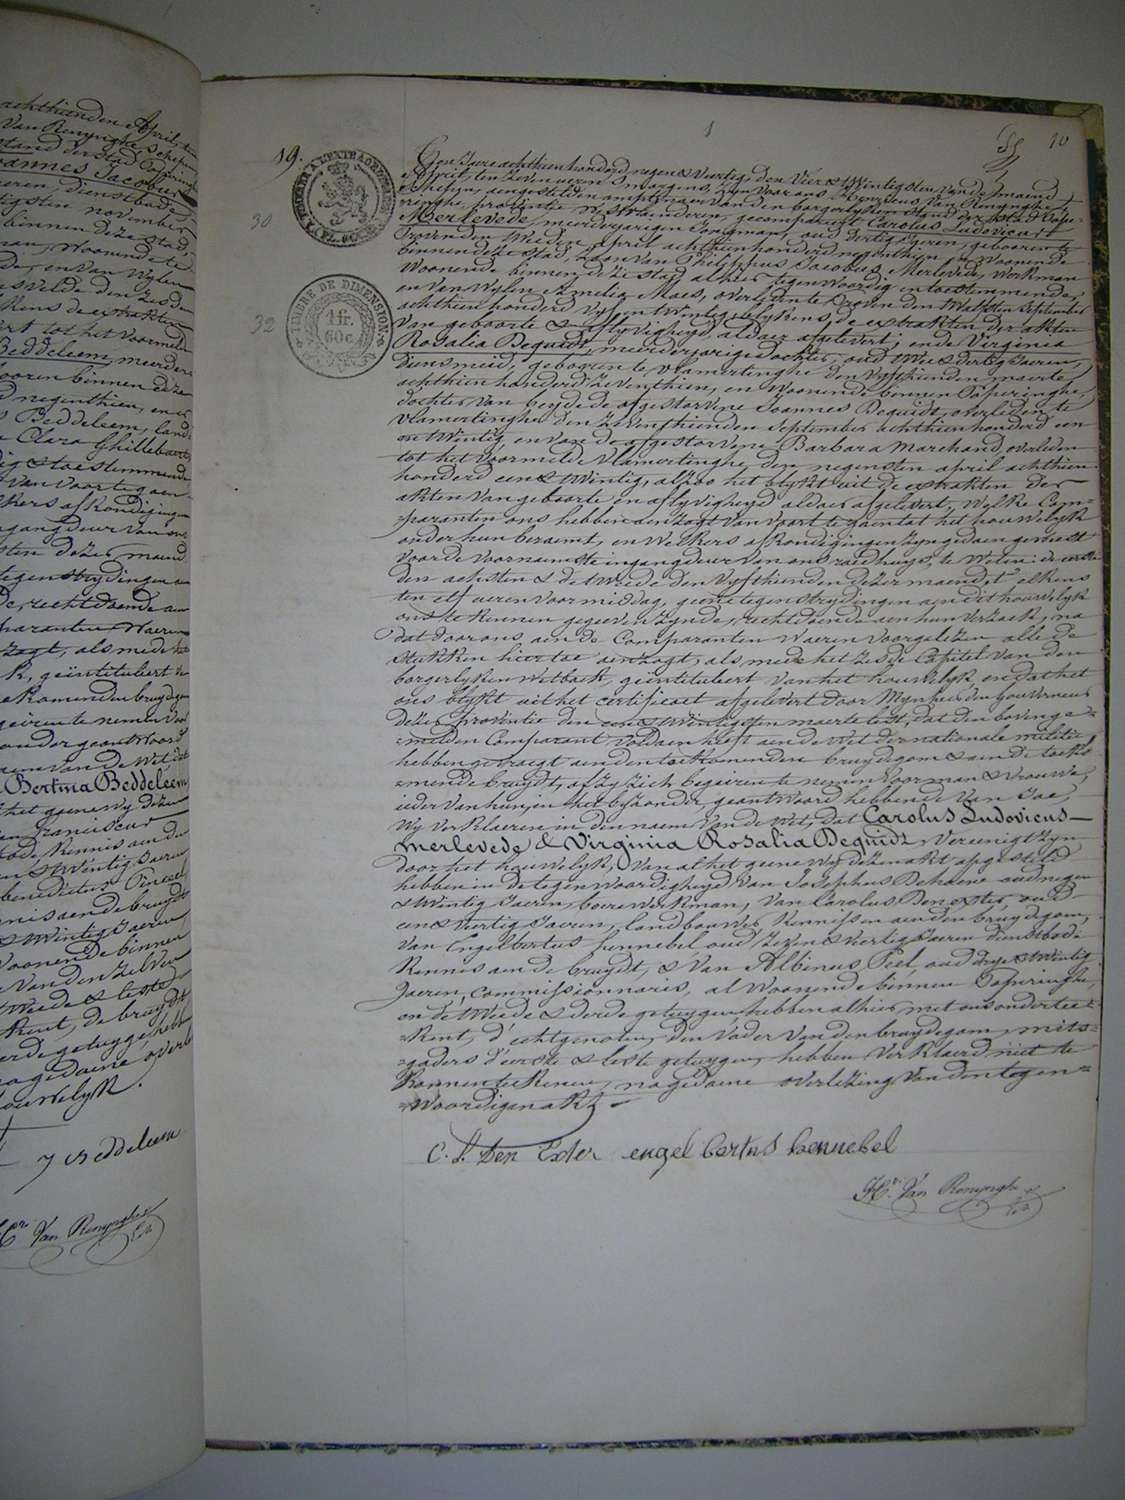 19.
10
30
32
TIMBRE DE DIMENSION
1 fr.
60 c.
Den Jaere achthien honderd negen & Veertig den Vier & twintigsten van de maend
April, ten zeven ueren 's morgens, zyn voor ons Henricus Van Renynghe
schepen, aengestelden amptenaer van den burgerlyken stand der stad Pope-
ringhe, provintie Westvlaenderen, gecompareert Carolus Ludovicus
Merlevede, meerderjarigen Jongman, oud dertig Jaeren, geboren te
Proven den tweeden April achthien honderd negenthien, en woonende
binnen deze stad, zoon van Philippus Jacobus Merlevede, werkman
woonende binnen deze stad alhier tegenwoordig en toestemmende,
en van wylen Amelia Maes, overleden te Proven den twalfsten september
achthien honderd vyf en twintig, blykens de extrakten der akten
van geboorte & aflyvigheyd, aldaer afgelevert; ende Virginia
Rosalia Dequidt, meerderjarige dochter, oud twee & dertig Jaeren,
dienstmeid, geboren te Vlamertinghe den vyfthienden maerte
achthien honderd zeventhien, en woonende binnen Poperinghe,
dochter van beyde de afgestorvene Joannes Dequidt, overleden te
Vlamertinghe den zeventhienden september achthien honderd een
en twintig, en van de afgestorvene Barbara Marchand, overleden
tot het voormelde Vlamertinghe, den negensten april achthien
honderd een & twintig, alzoo het blykt uit de extrakten der
akten van geboorte en aflyvigheyd aldaer afgelevert, welke Com-
paranten ons hebben aenzogt van voort te gaen tot het houwelyk
onder hun beraemt, en welkers afkondigingen zyn gedaen geweest
voor de voornaemste ingangdeur van ons raedhuys, te weten: de eerste
den achsten & de tweede den vyfthienden dezer maend, t'elkens
ten elf ueren voormiddag, geene tegenstrydingen aen dit houwelyk
ons te kennen gegeven zynde, rechtdoende aen hun verzoek, na
dat door ons aen de Comparanten waeren voorgelezen alle de
stukken hier toe aenzogt, als mede het zesde Capitel van den
borgerlyken Wetboek, geïntitulert van het houwelyk, en dat het
ons blykt uit het certificaet afgelevert door Mynheer den Gouverneur
dezer provintie den een & twintigsten maerte lest, dat den bovenge-
melden Comparant voldaen heeft aen de Wet der nationale militie
hebben gevraegt aen den toekomenden bruydegom & aen de toeko-
mende bruydt, of zy zich begeiren te nemen voor man & vrouwe,
ieder van hun, en het byzonder, geantwoord hebbende van Jae,
wy verklaeren in den naem van de Wet, dat Carolus Ludovicus
Merlevede & Virginia Rosalia Dequidt, vereenigt zyn
door het houwelyk, van al het geene wy dezen akt opgesteld
hebben in de tegenwoordigheyd van Josephus Dehaene oud negen
& twintig Jaeren, boerewerkman, van Carolus Den Exter, oud
een & veertig Jaeren, landbouwer kennissen aen den bruydegom,
van Engelbertus Hennebel oud zeven & veertig Jaeren dienstbode
kennis aen de bruydt, & van Albinus Peel, oud drye & twintig
Jaeren, commissionnaris, al woonende binnen Poperinghe,
en de tweede & derde getuygen hebben alhier met ons onderteer-
kent, d'echtgenoten, den vader van den bruydegom, mits-
gaders d'eerste & leste getuygen, hebben verklaerd niet te
konnen teekenen, na gedaene overlezing van den tegen-
woordigen akt
C. L. Den Exter engel bertus hennebel
Hri. Van Renynghe
achthienden April, ten
Van Renynghe, schepen
stand der stad Poperin
oannes Jacobus
eren, dienstbode
tigsten november
binnen deze stad,
man, woonende te
de, en van wylen
kens de extrakten
ert tot het voormelde
Beddeleem, meerder
negenthien, en
Beddeleem, land
Clara Ghillebaert,
& toestemmende
van voort te gaen
kers afkondigingen
ngangdeur van ons
sten dezer maend
tegenstrydingen aen
de, rechtdoende aen
paranten waeren
zogt, als mede het
k, geïntitulert
ekomenden bruydegom
geiren te nemen voor
zonder geantwoord
naem van de Wet dat
Bertina Beddeleem
het geene wy dezen
Franciscus
ode, kennis aen den
& twintig Jaeren
benedictus Pincel,
nnis aen de bruydt
& twintig Jaeren
woonende binnen
van den zelven
tweede & leste
kent, de bruydt
erde getuyge, hebben
na gedaene overle
ouwelyk.
J Beddeleem
Hri. Van Renynghe